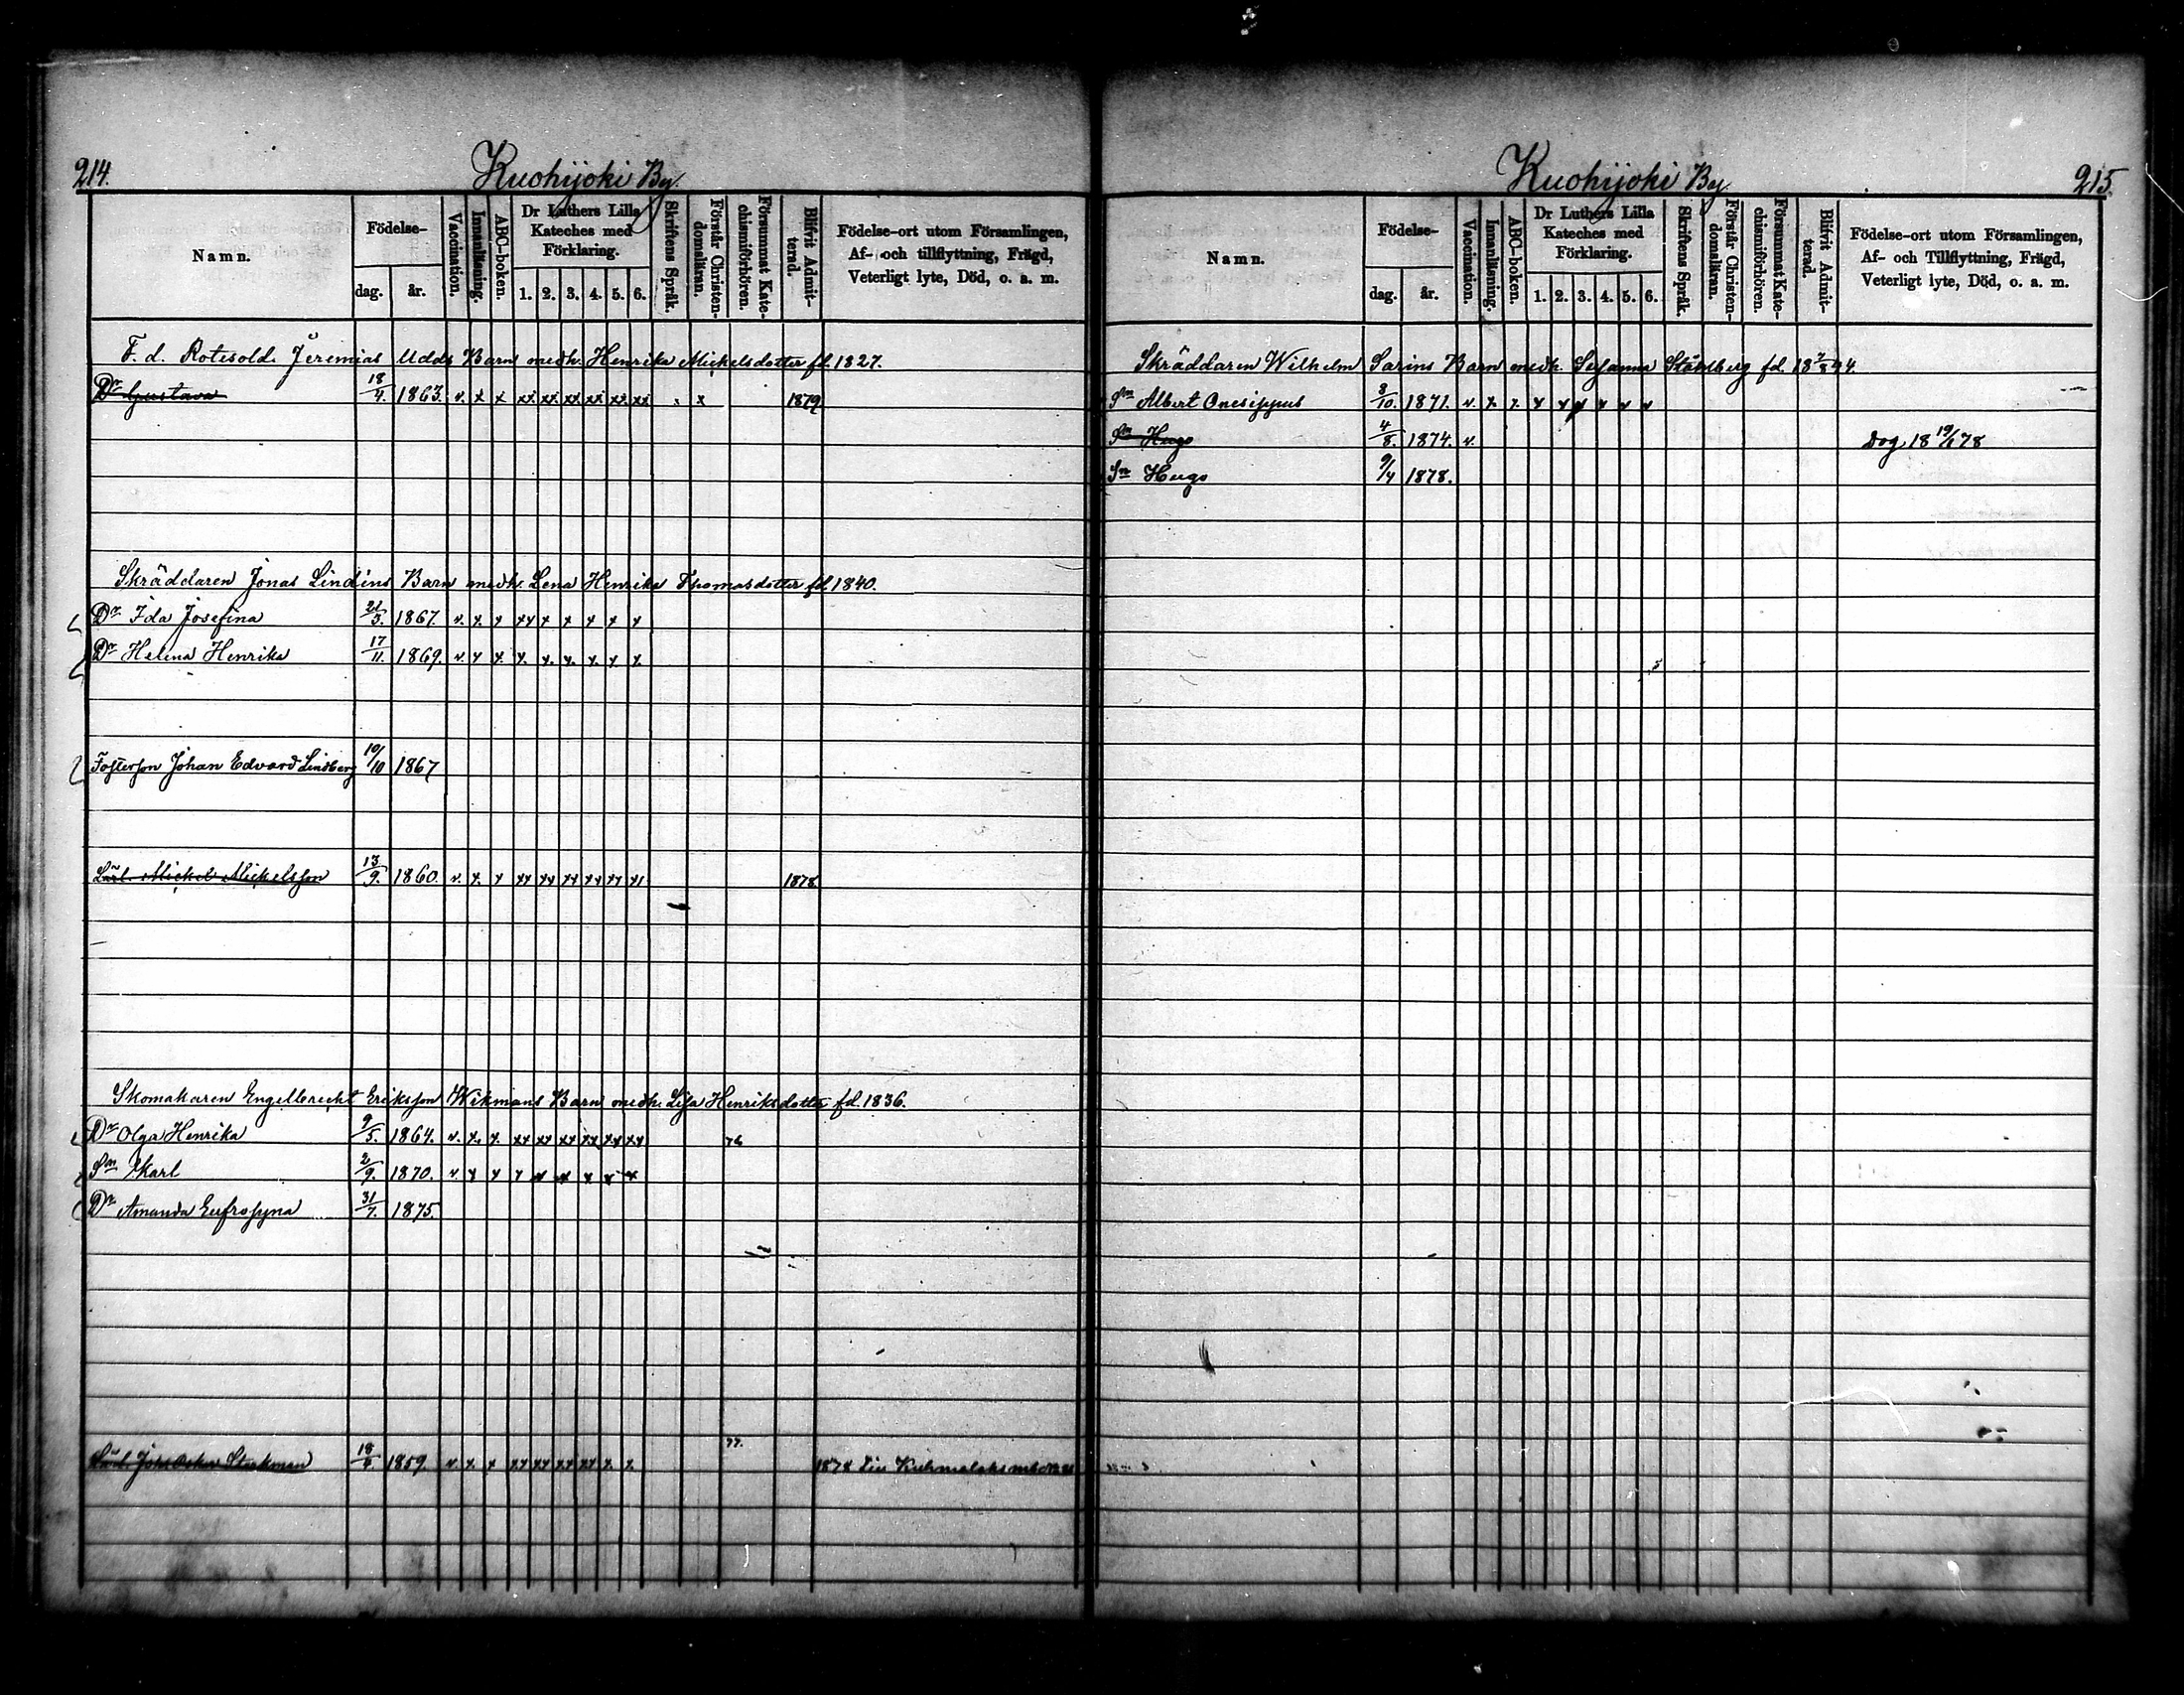 214.
Kuohijoki By.
Namn.
Födelse-
dag.
år.
Vaccination.
Innanläsning.
ABC-boken.
Dr Luthers Lilla Kateches med Förklaring.
1. 2. 3. 4. 5. 6.
Skriftens Språk.
Förstår Christen-domsläran.
Försummat Kate-chismiförhören.
Blifvit Admit-terad.
Födelse-ort utom Församlingen,
Af- och tillflyttning, Frägd,
Veterligt lyte, Död, o. a. m.
F. d. Rotesold. Jeremias Udds Barn medh. Henrika Mickelsdotter fd. 1827.
Dr Gustava 18/4. 1863. v. x x xx xx xx xx xx xx x x 1879
Skräddaren Jonas Lindins Barn medh. Lena Henrika Thomasdotter fd. 1840.
Dr Ida Josefina 1867. v. x x xx x x x x x
Dr Helena Henrika 17/11. 1869. v. x x x x x x x x
Fosterson Johan Edvard Lindberg 10/10 1867
Lärl. Mickel Mickelsson 13/9. 1860. v. x x xx xx xx xx xx x1 1878
Skomakaren Engelbrecht Eriksson Wikmans Barn medh. Lisa Henriksdotter fd. 1836.
Dr Olga Henrika 9/5. 1864. v. x x xx xx xx xx xx xx 76
Sn Karl 2/9. 1870. v. x x x x x x x x
Dr Amanda Eufrosyna 31/7. 1875.
77.
Lärl. Joh. Oskar Stukman 1859. v. x x xx xx xx xx x x 1878
215.
Kuohijoki By
Namn.
Födelse-
dag.
år.
Vaccination.
Innanläsning.
ABC-boken.
Dr Luthers Lilla Kateches med Förklaring.
1. 2. 3. 4. 5. 6.
Skriftens Språk.
Förstår Christen-domsläran.
Försummat Kate-chismiförhören.
Blifvit Admit-terad.
Födelse-ort utom Församlingen,
Af- och Tillflyttning, Frägd,
Veterligt lyte, Död, o. a. m.
Skräddaren Wilhelm Sarins Barn medh. Susanna Ståhlberg fd. 18 7/8 44.
Sn Albert Onesippus 8/10. 1871. v. x x x x x x x x
Sn Hugo 4/8. 1874. v. Dog 18 19/1 78
Sn Hugo 9/4 1878.